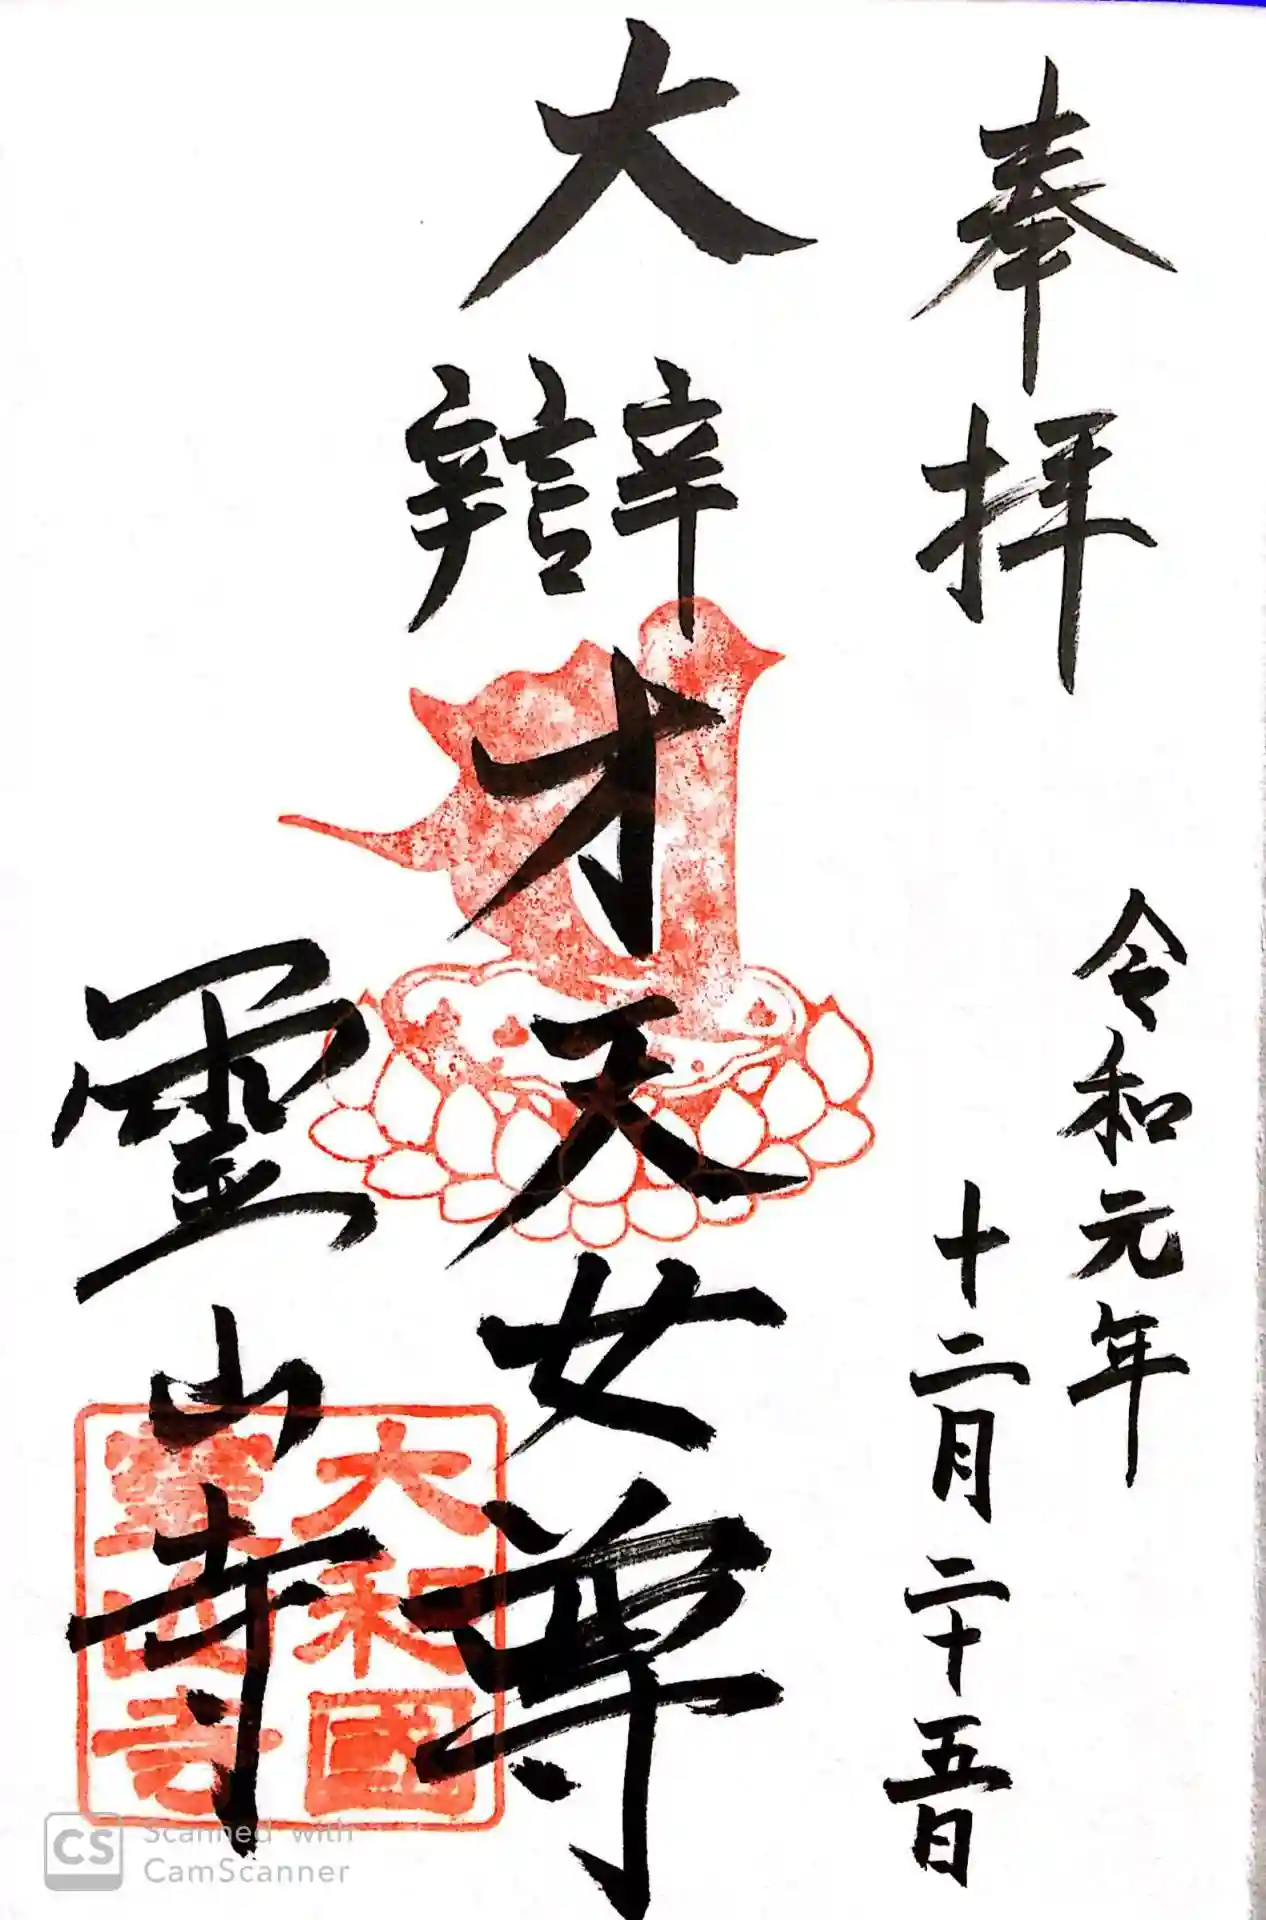 奉拝
令和元年
十二月二十五日
大辯才天女尊
靈山寺
大和國
靈山寺
CS Scanned with
CamScanner